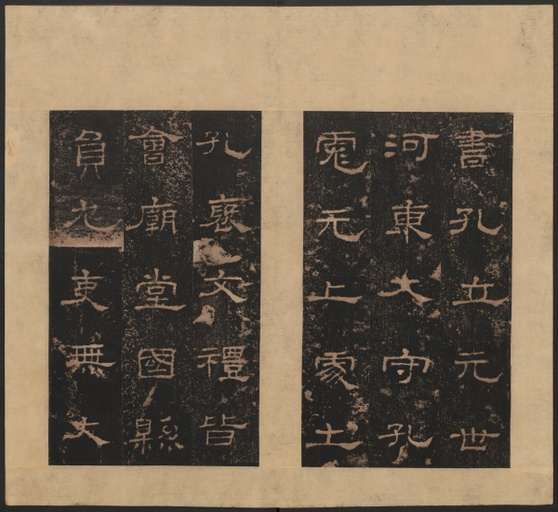 書孔立元世
河東大守孔
彪元上處土
孔襃文禮皆
會廟堂國縣
員冗吏無大